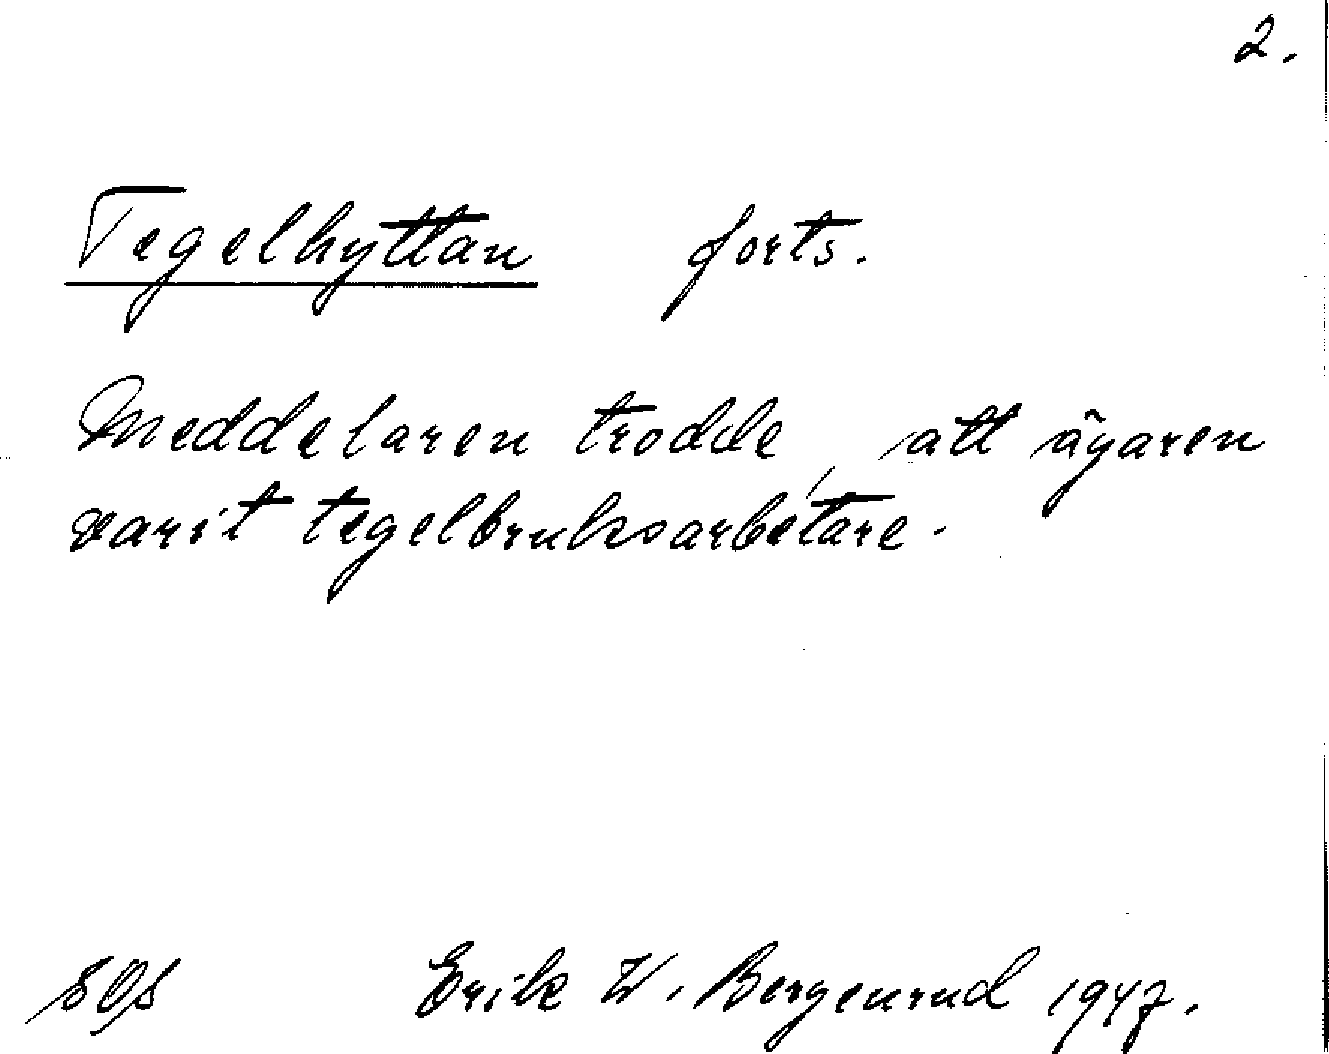 2.
Tegelhyttan forts.
Meddelaren trodde, att ägaren
varit tegelbruksarbetare.
Erik W. Bergenrud 1947.